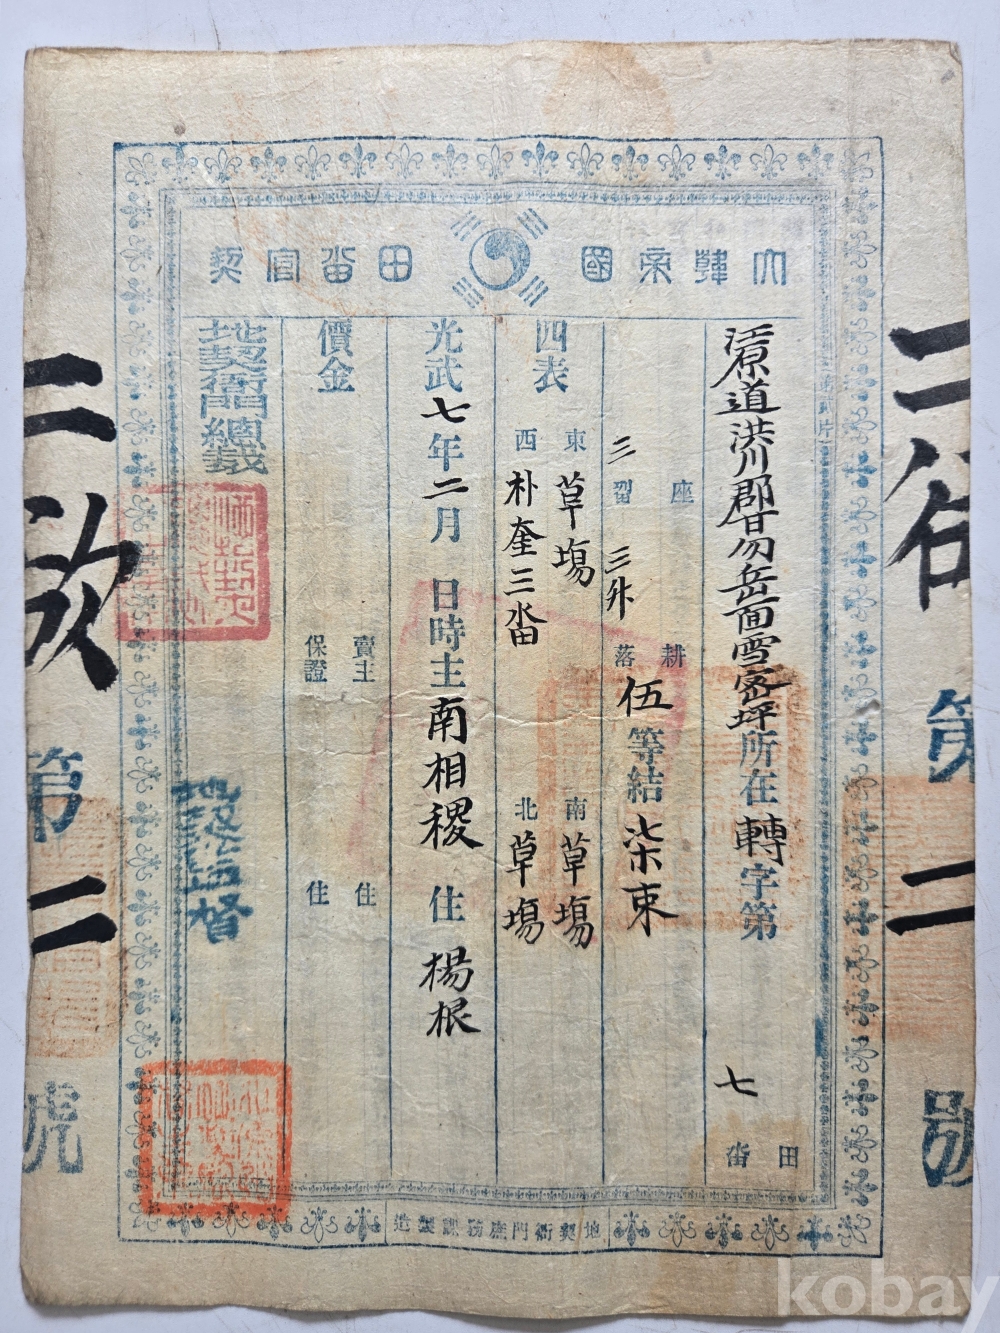 大韓帝國田畓官契
江原道洪川郡甘勿岳面雪窓坪所在轉字第七田畓
座 耕
三畓 三升落伍等結柒束
四表 東草塲 南草塲
西朴奎三畓 北草塲
光武七年二月 日時主南相稷 住楊根
價金 賣主 住
保證 住
地契衙門總裁
地契監督
地契衙門庶務課製造
第二
號
第
二
號
kobay